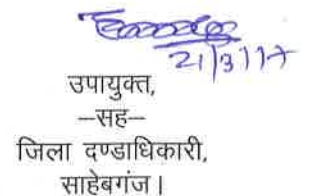 21/3/17
उपायुक्त,
–सह–
जिला दण्डाधिकारी,
साहेबगंज।